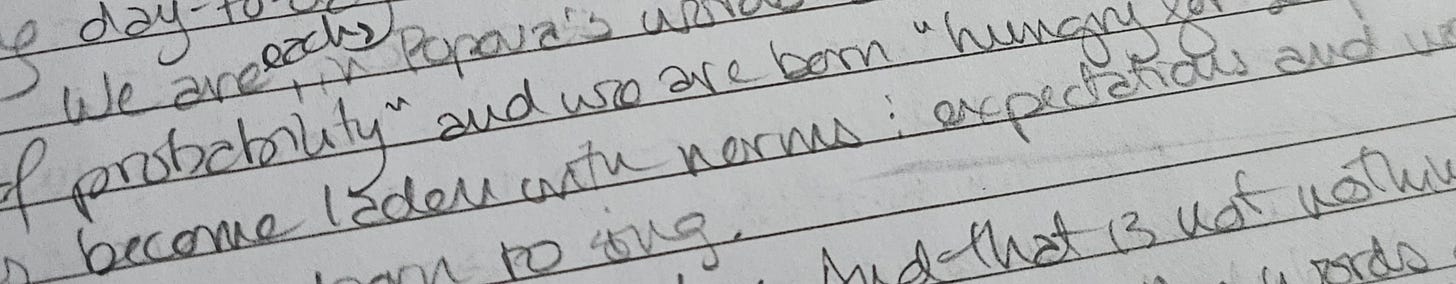 day-to-
We are each, in Popova's
of probability" and we are born "hungry for
become laden with norms; expectations and
to sing.
And that is not nothin
words